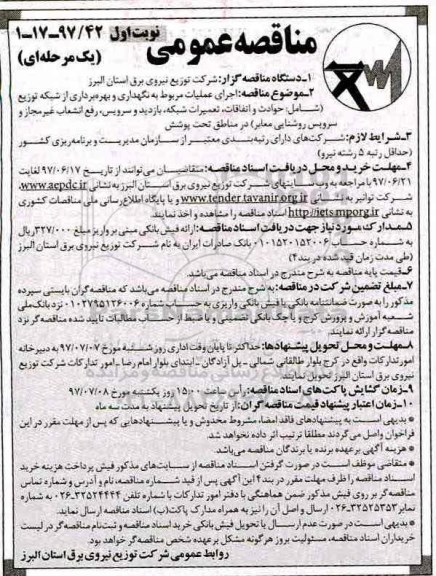 مناقصه عمومی
نوبت اول ۹۷/۴۲-۱۷-۱
(یک مرحله‌ای)
۱-دستگاه مناقصه گزار: شرکت توزیع نیروی برق استان البرز
۲-موضوع مناقصه: اجرای عملیات مربوط به نگهداری و بهره‌برداری از شبکه توزیع
(شامل: حوادث و اتفاقات، تعمیرات شبکه، بازدید و سرویس، رفع انشعاب غیرمجاز و
سرویس روشنایی معابر) در مناطق تحت پوشش
۳-شرایط لازم: شرکت‌های دارای رتبه‌بندی معتبر از سازمان مدیریت و برنامه‌ریزی کشور
(حداقل رتبه ۵ رشته نیرو)
۴-مهلت خرید و محل دریافت اسناد مناقصه: متقاضیان می‌توانند از تاریخ ۹۷/۰۶/۱۷ لغایت
۹۷/۰۶/۲۱ با مراجعه به وب سایتهای شرکت توزیع نیروی برق استان البرز به نشانی www.aepdc.ir،
شرکت توانیر به نشانی www.tender.tavanir.org.ir و یا پایگاه اطلاع‌رسانی ملی مناقصات کشوری
به نشانی http://iets.mporg.ir اسناد مناقصه را مشاهده و اخذ نمایند.
۵-مدارک مورد نیاز جهت دریافت اسناد مناقصه: ارائه فیش بانکی مبنی بر واریز مبلغ ۳۲۷/۰۰۰ ریال
به شماره حساب ۰۱۰۱۵۲۰۱۵۲۰۰۶ بانک صادرات ایران به نام شرکت توزیع نیروی برق استان البرز
(طی مدت زمان قید شده در بند ۴)
۶-قیمت پایه مناقصه به شرح مندرج در اسناد مناقصه می‌باشد.
۷-مبلغ تضمین شرکت در مناقصه: به شرح مندرج در اسناد مناقصه می‌باشد که مناقصه گران بایستی سپرده
مذکور را به صورت ضمانتنامه بانکی یا فیش بانکی واریزی به حساب شماره ۰۱۰۲۷۹۵۱۲۶۰۰۶ نزد بانک ملی
شعبه آموزش و پرورش کرج، و یا چک بانکی تضمینی و یا ضبط از حساب مطالبات تایید شده مناقصه گر نزد
مناقصه گزار ارائه نمایند.
۸-مهلت و محل تحویل پیشنهادها: حداکثر تا پایان وقت اداری روز شنبه مورخ ۹۷/۰۷/۰۷ به دبیرخانه
امور تدارکات واقع در کرج بلوار طالقانی شمالی - پل آزادگان - ابتدای بلوار امام رضا - امور تدارکات شرکت توزیع
نیروی برق استان البرز تحویل نمایند.
۹-زمان گشایش پاکت‌های اسناد مناقصه: رأس ساعت ۱۵:۰۰ روز یکشنبه مورخ ۹۷/۰۷/۰۸
۱۰-زمان اعتبار پیشنهاد قیمت مناقصه گران: از تاریخ تحویل پیشنهاد به مدت سه ماه
* بدیهی است به پیشنهادهای فاقد امضاء، مشروط مخدوش و یا پیشنهادهایی که پس از مهلت مقرر در این
فراخوان واصل می‌گردند مطلقا ترتیب اثر داده نخواهد شد.
* هزینه آگهی برعهده برنده یا برندگان مناقصه می‌باشد.
* متقاضی موظف است در صورت گرفتن اسناد مناقصه از سایت‌های مذکور فیش پرداخت هزینه خرید
اسناد مناقصه را ظرف مهلت مقرر در بند ۴ این آگهی پس از قید شماره مناقصه، نام و آدرس و شماره تماس
مناقصه گر بر روی فیش مذکور ضمن هماهنگی با دفتر امور تدارکات با شماره تلفن ۰۲۶-۳۲۵۲۴۴۴۴ به شماره
نمابر ۰۲۶-۳۲۵۲۵۳۵۳ ارسال و اصل آن را نیز به همراه مدارک پاکت (ب) اسناد مناقصه ارسال نماید.
* بدیهی است در صورت عدم ارسال یا تحویل فیش بانکی خرید اسناد مناقصه و ثبت نام مناقصه گر در لیست
خریداران اسناد مناقصه، مسئولیت بروز هرگونه مشکل برعهده شخص مناقصه گر خواهد بود.
روابط عمومی شرکت توزیع نیروی برق استان البرز